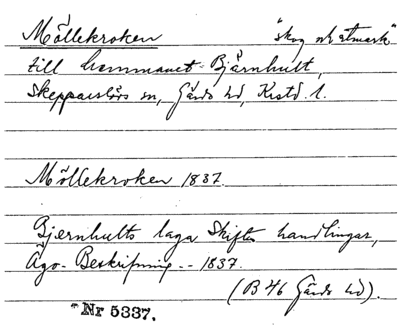 Möllekroken "skog och utmark"
till hemmanet Bjärnhult,
Skepparslövs sn, Gärds hd, Krstd. l.
Möllekroken 1837.
Bjernhults laga Skiftes handlingar,
Ägo-Beskrifning -- 1837.
(B 46 Gärds hd).
Nr 5337.